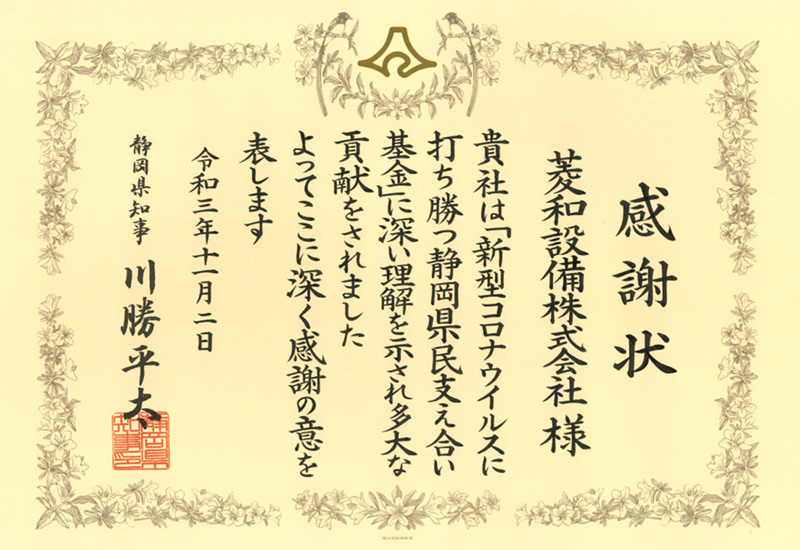 感謝状
菱和設備株式会社 様
貴社は「新型コロナウイルスに
打ち勝つ静岡県民支え合い
基金」に深い理解を示され多大な
貢献をされました
よってここに深く感謝の意を
表します
令和三年十一月二日
静岡県知事 川勝平太